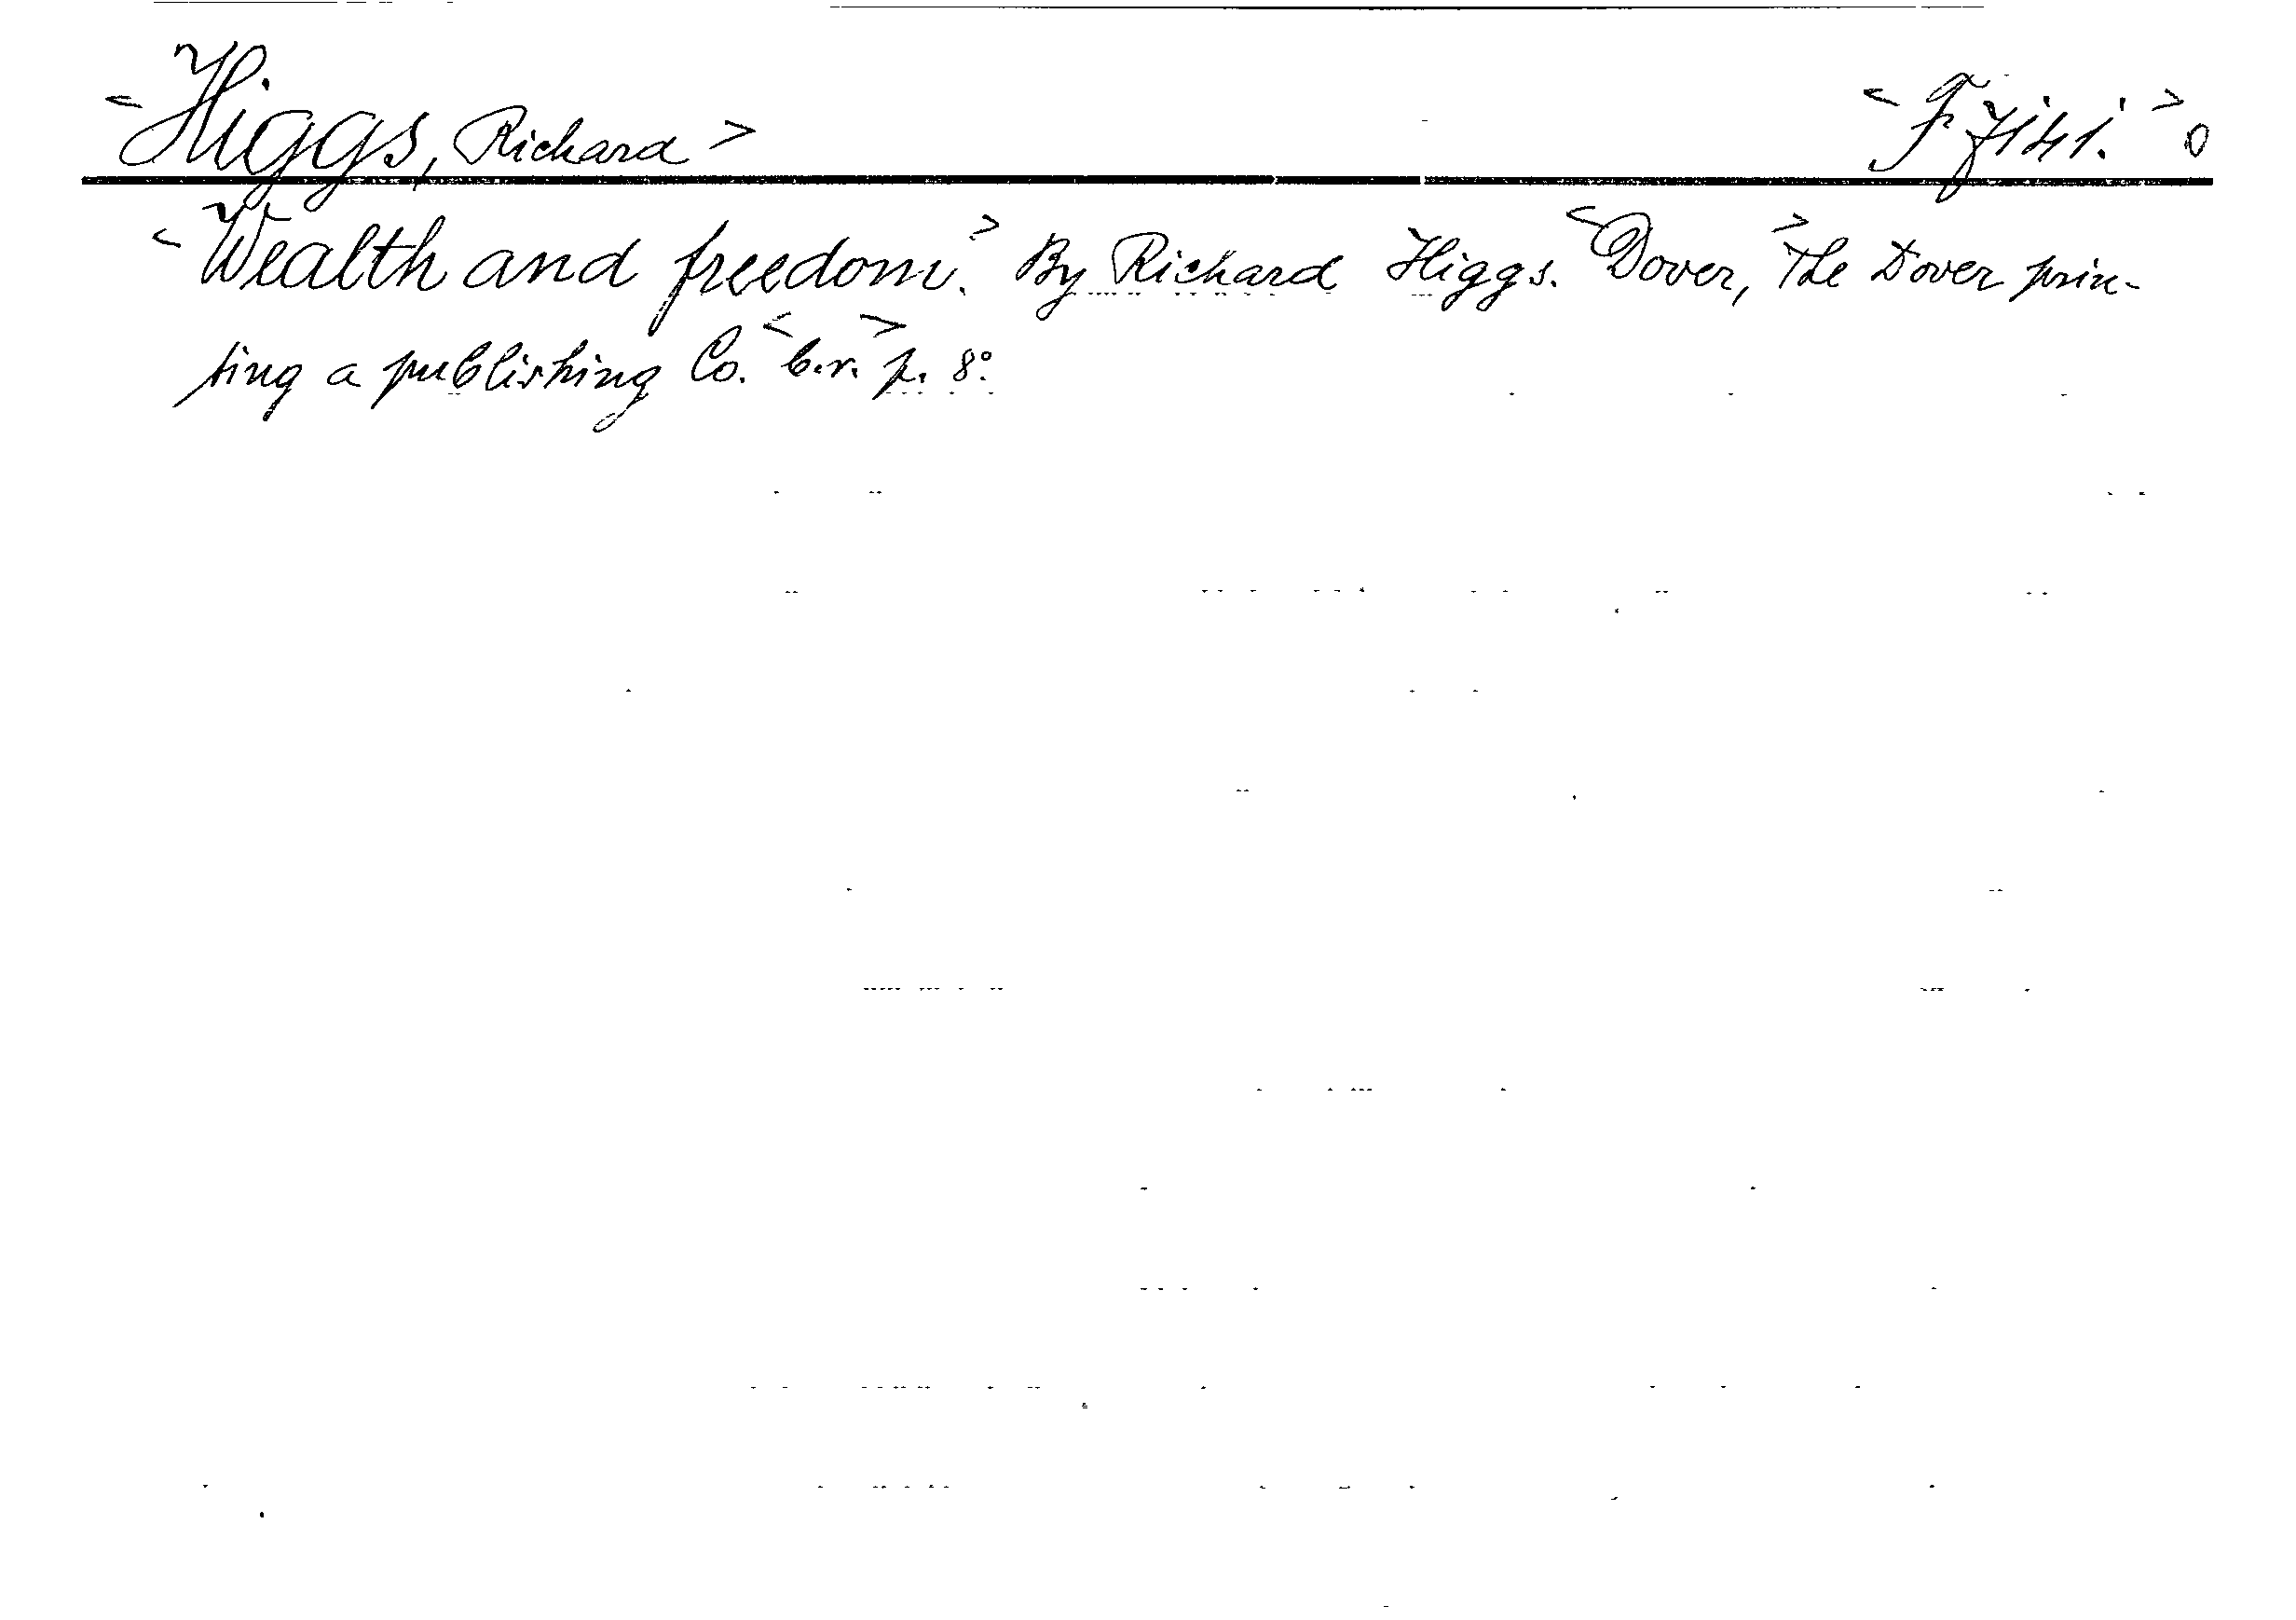 <Higgs, Richard> <F 7141.> 0
<Wealth and freedom.> By Richard Higgs. <Dover,> The Dover prin-
ting a publishing Co. <b.r.> p. 8°.